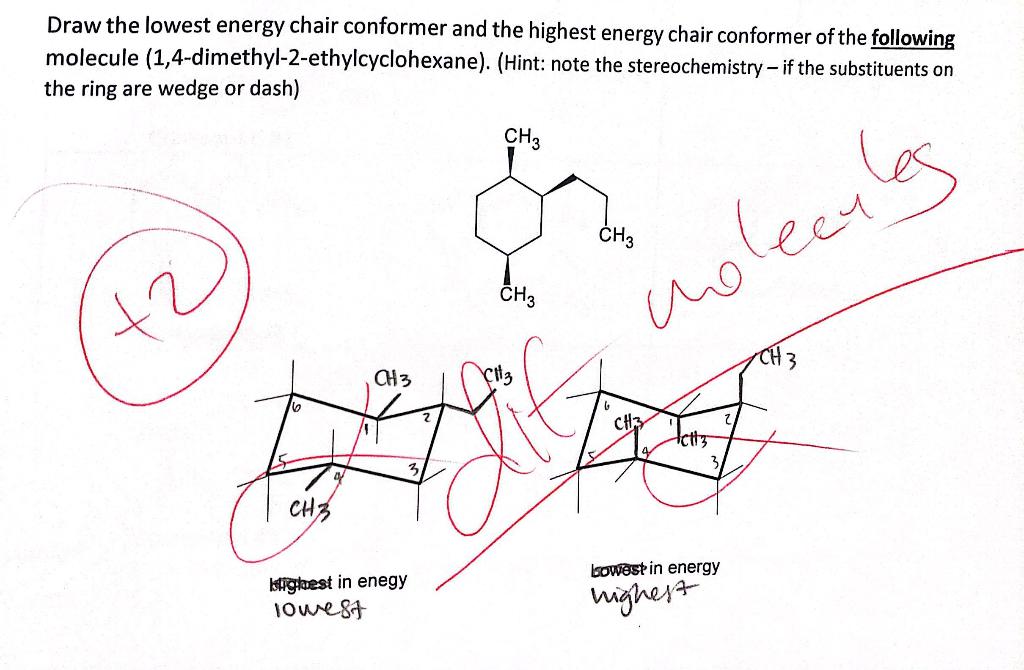 Draw the lowest energy chair conformer and the highest energy chair conformer of the following
molecule (1,4-dimethyl-2-ethylcyclohexane). (Hint: note the stereochemistry – if the substituents on
the ring are wedge or dash)
CH3
CH3
CH3
+2
molecules
dif
CH3
CH3
6
1
2
5
4
3
CH3
CH3
6
CH3
1
2
CH3
5
4
3
Highest in enegy
lowest
Lowest in energy
highest